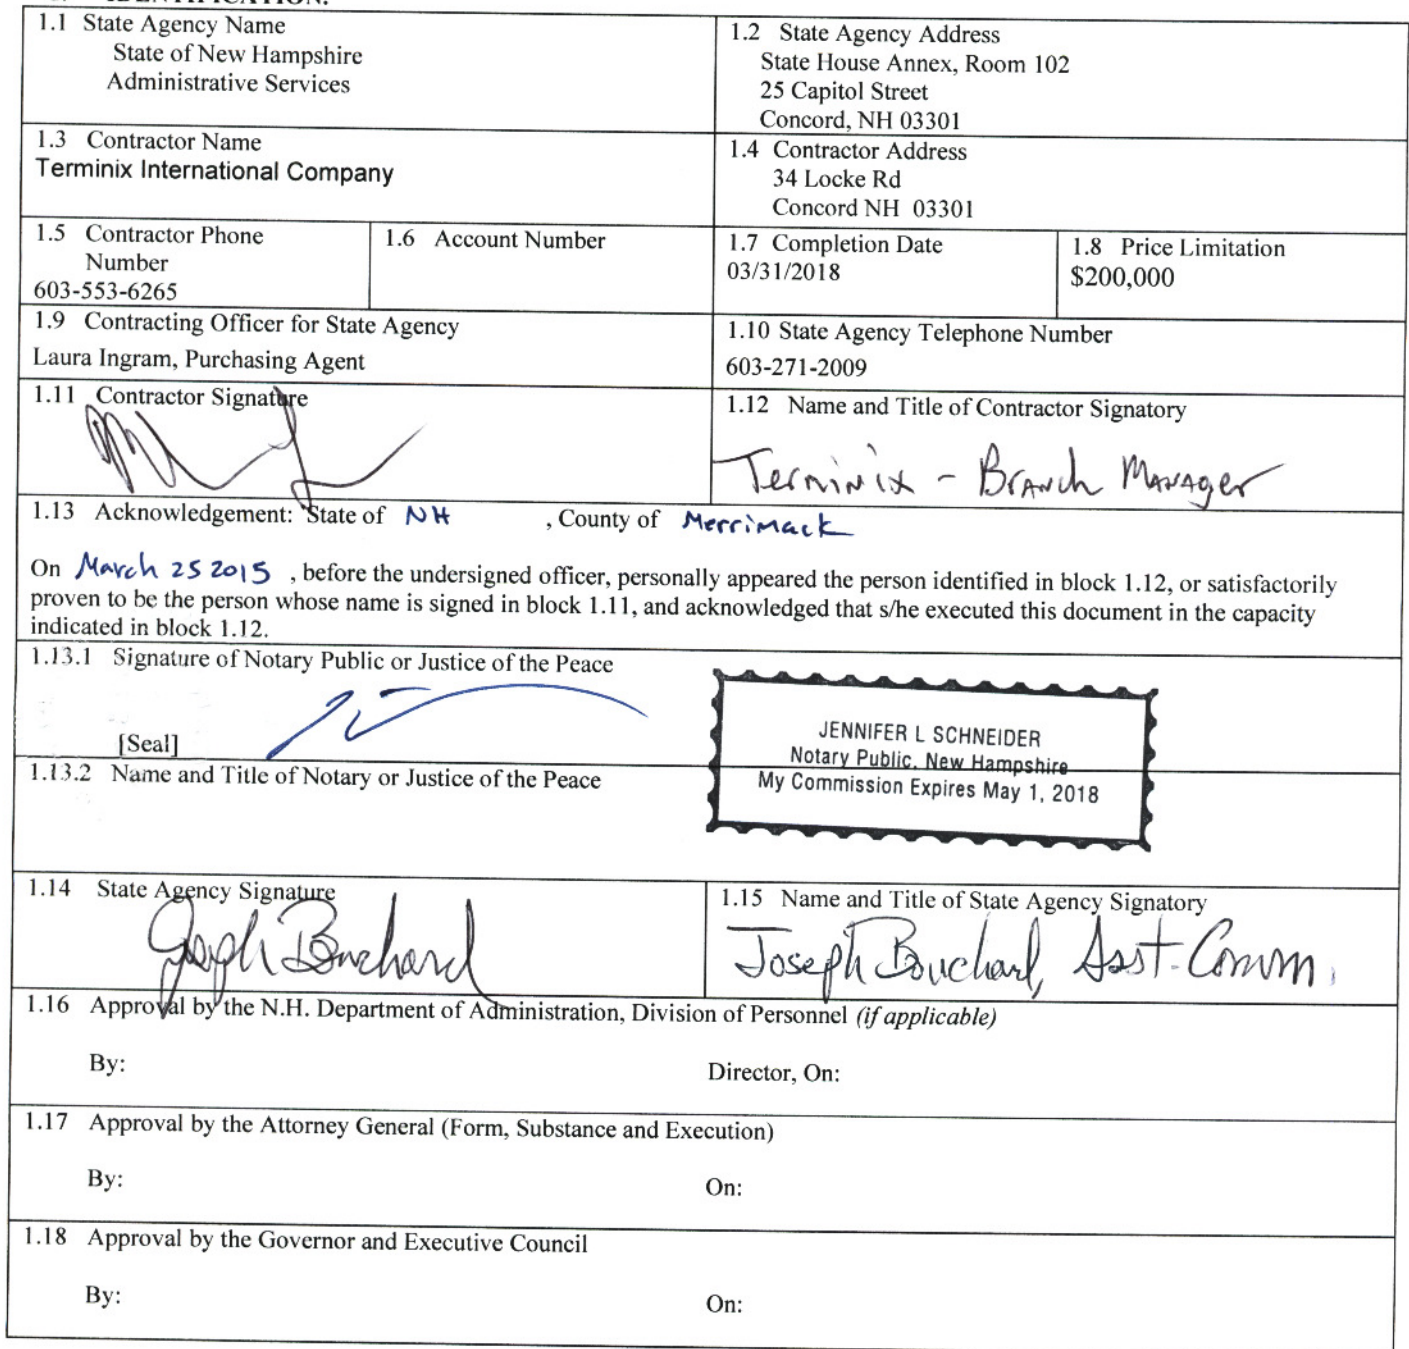 1.1 State Agency Name
State of New Hampshire
Administrative Services
1.2 State Agency Address
State House Annex, Room 102
25 Capitol Street
Concord, NH 03301
1.3 Contractor Name
Terminix International Company
1.4 Contractor Address
34 Locke Rd
Concord NH 03301
1.5 Contractor Phone
Number
603-553-6265
1.6 Account Number
1.7 Completion Date
03/31/2018
1.8 Price Limitation
$200,000
1.9 Contracting Officer for State Agency
Laura Ingram, Purchasing Agent
1.10 State Agency Telephone Number
603-271-2009
1.11 Contractor Signature
1.12 Name and Title of Contractor Signatory
Terminix - Branch Manager
1.13 Acknowledgement: State of NH , County of Merrimack
On March 25 2015 , before the undersigned officer, personally appeared the person identified in block 1.12, or satisfactorily
proven to be the person whose name is signed in block 1.11, and acknowledged that s/he executed this document in the capacity
indicated in block 1.12.
1.13.1 Signature of Notary Public or Justice of the Peace
[Seal]
JENNIFER L SCHNEIDER
Notary Public, New Hampshire
My Commission Expires May 1, 2018
1.13.2 Name and Title of Notary or Justice of the Peace
1.14 State Agency Signature
Joseph Bouchard
1.15 Name and Title of State Agency Signatory
Joseph Bouchard, Asst. Comm.
1.16 Approval by the N.H. Department of Administration, Division of Personnel (if applicable)
By:
Director, On:
1.17 Approval by the Attorney General (Form, Substance and Execution)
By:
On:
1.18 Approval by the Governor and Executive Council
By:
On: